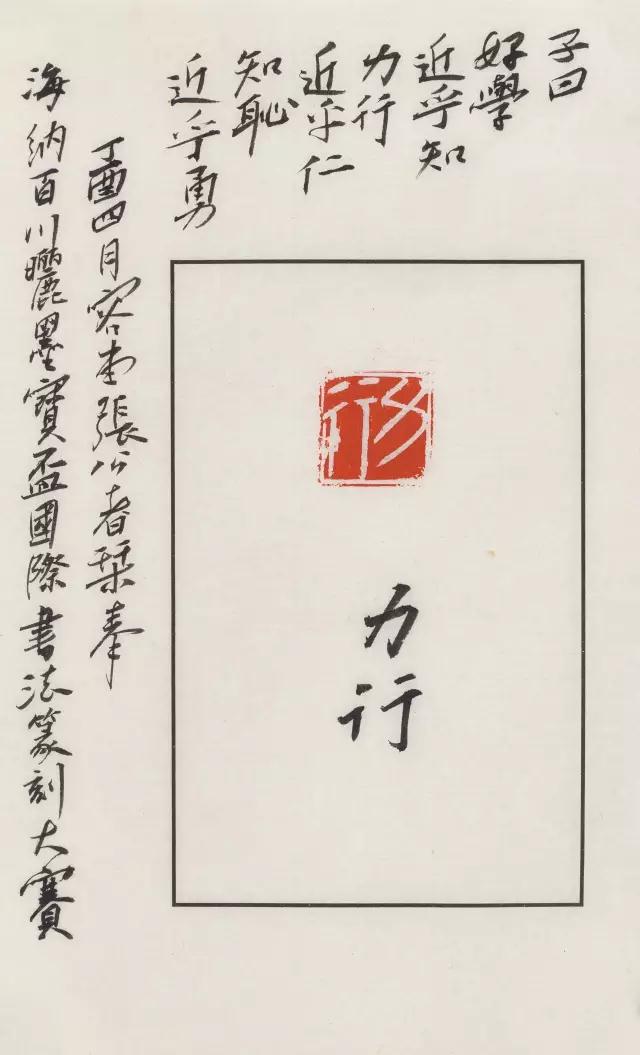 子曰
好學
近乎知
力行
近乎仁
知恥
近乎勇
力行
力行
丁酉四月容 張公者栞奉
海納百川曬墨寶盃國際書法篆刻大賽